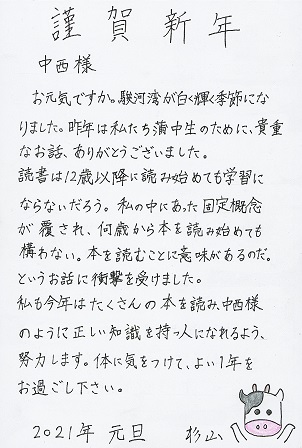 謹賀新年
中西様
お元気ですか。駿河湾が白く輝く季節にな
りました。昨年は私たち蒲中生のために、貴重
なお話、ありがとうございました。
読書は12歳以降に読み始めても学習に
ならないだろう。私の中にあった固定概念
が覆され、何歳から本を読み始めても
構わない。本を読むことに意味があるのだ。
というお話に衝撃を受けました。
私も今年はたくさんの本を読み、中西様
のように正しい知識を持つ人になれるよう、
努力します。体に気をつけて、よい1年を
お過ごし下さい。
2021年 元旦 杉山